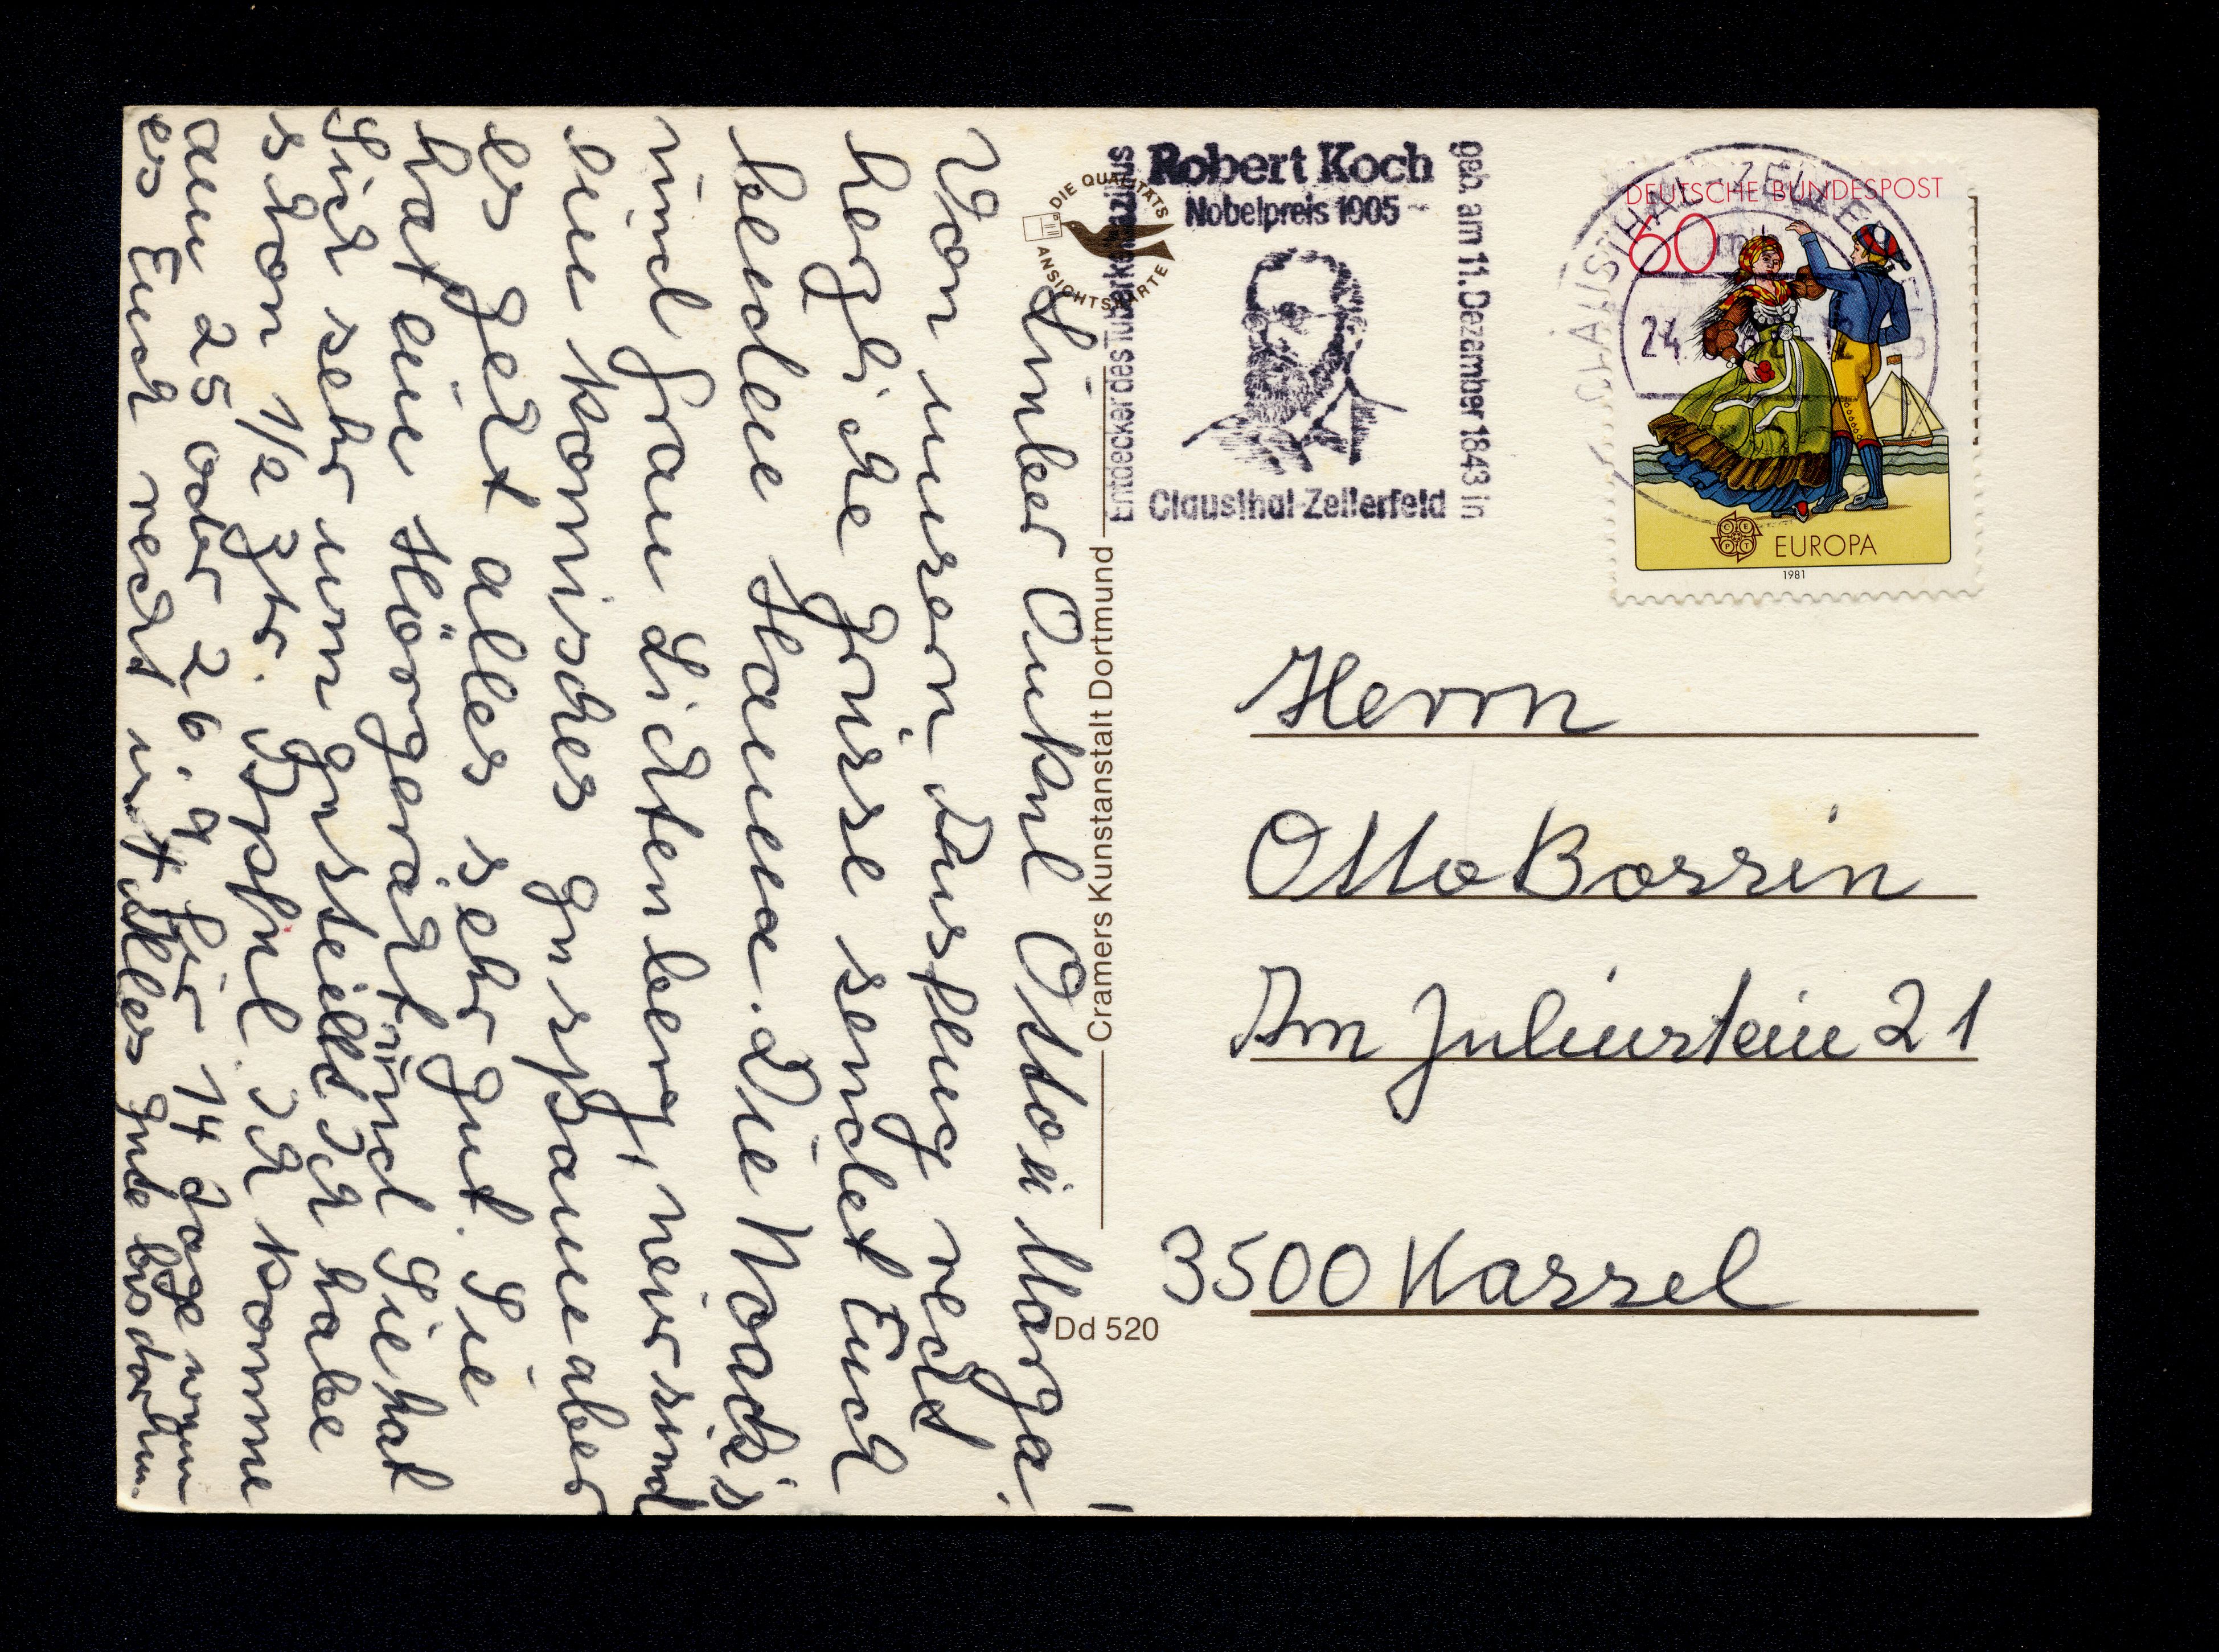 Lieber Onkel Otto u Marga!
Von unsern Ausflug recht
herzliche Grüsse sendet Euch
beuden Hanna. Die Noack's
und Frau Lichtenberg, wir sind
ein komisches Gespann aber
es geht alles sehr gut. Sie
hat ein Hörgerät und Sie hat
sich sehr umgestellt Ich habe
schon 1/2 Ztr. Äpfel. Ich komme
am 25 oder 26.9 für 14 Tage wenn
es Euch recht ist alles gute bis dahin.
DIE QUALITÄTS
ANSICHTSKARTE
Cramers Kunstanstalt Dortmund
Dd 520
Entdecker des Tuberkelbazillus
Robert Koch
Nobelpreis 1905
geb. am 11. Dezember 1843 in
Clausthal-Zellerfeld
CLAUSTHAL-ZELLERFELD
24
DEUTSCHE BUNDESPOST
60
CEPT
EUROPA
1981
Herrn
Otto Bossin
Am Juliusstein 21
3500 Kassel